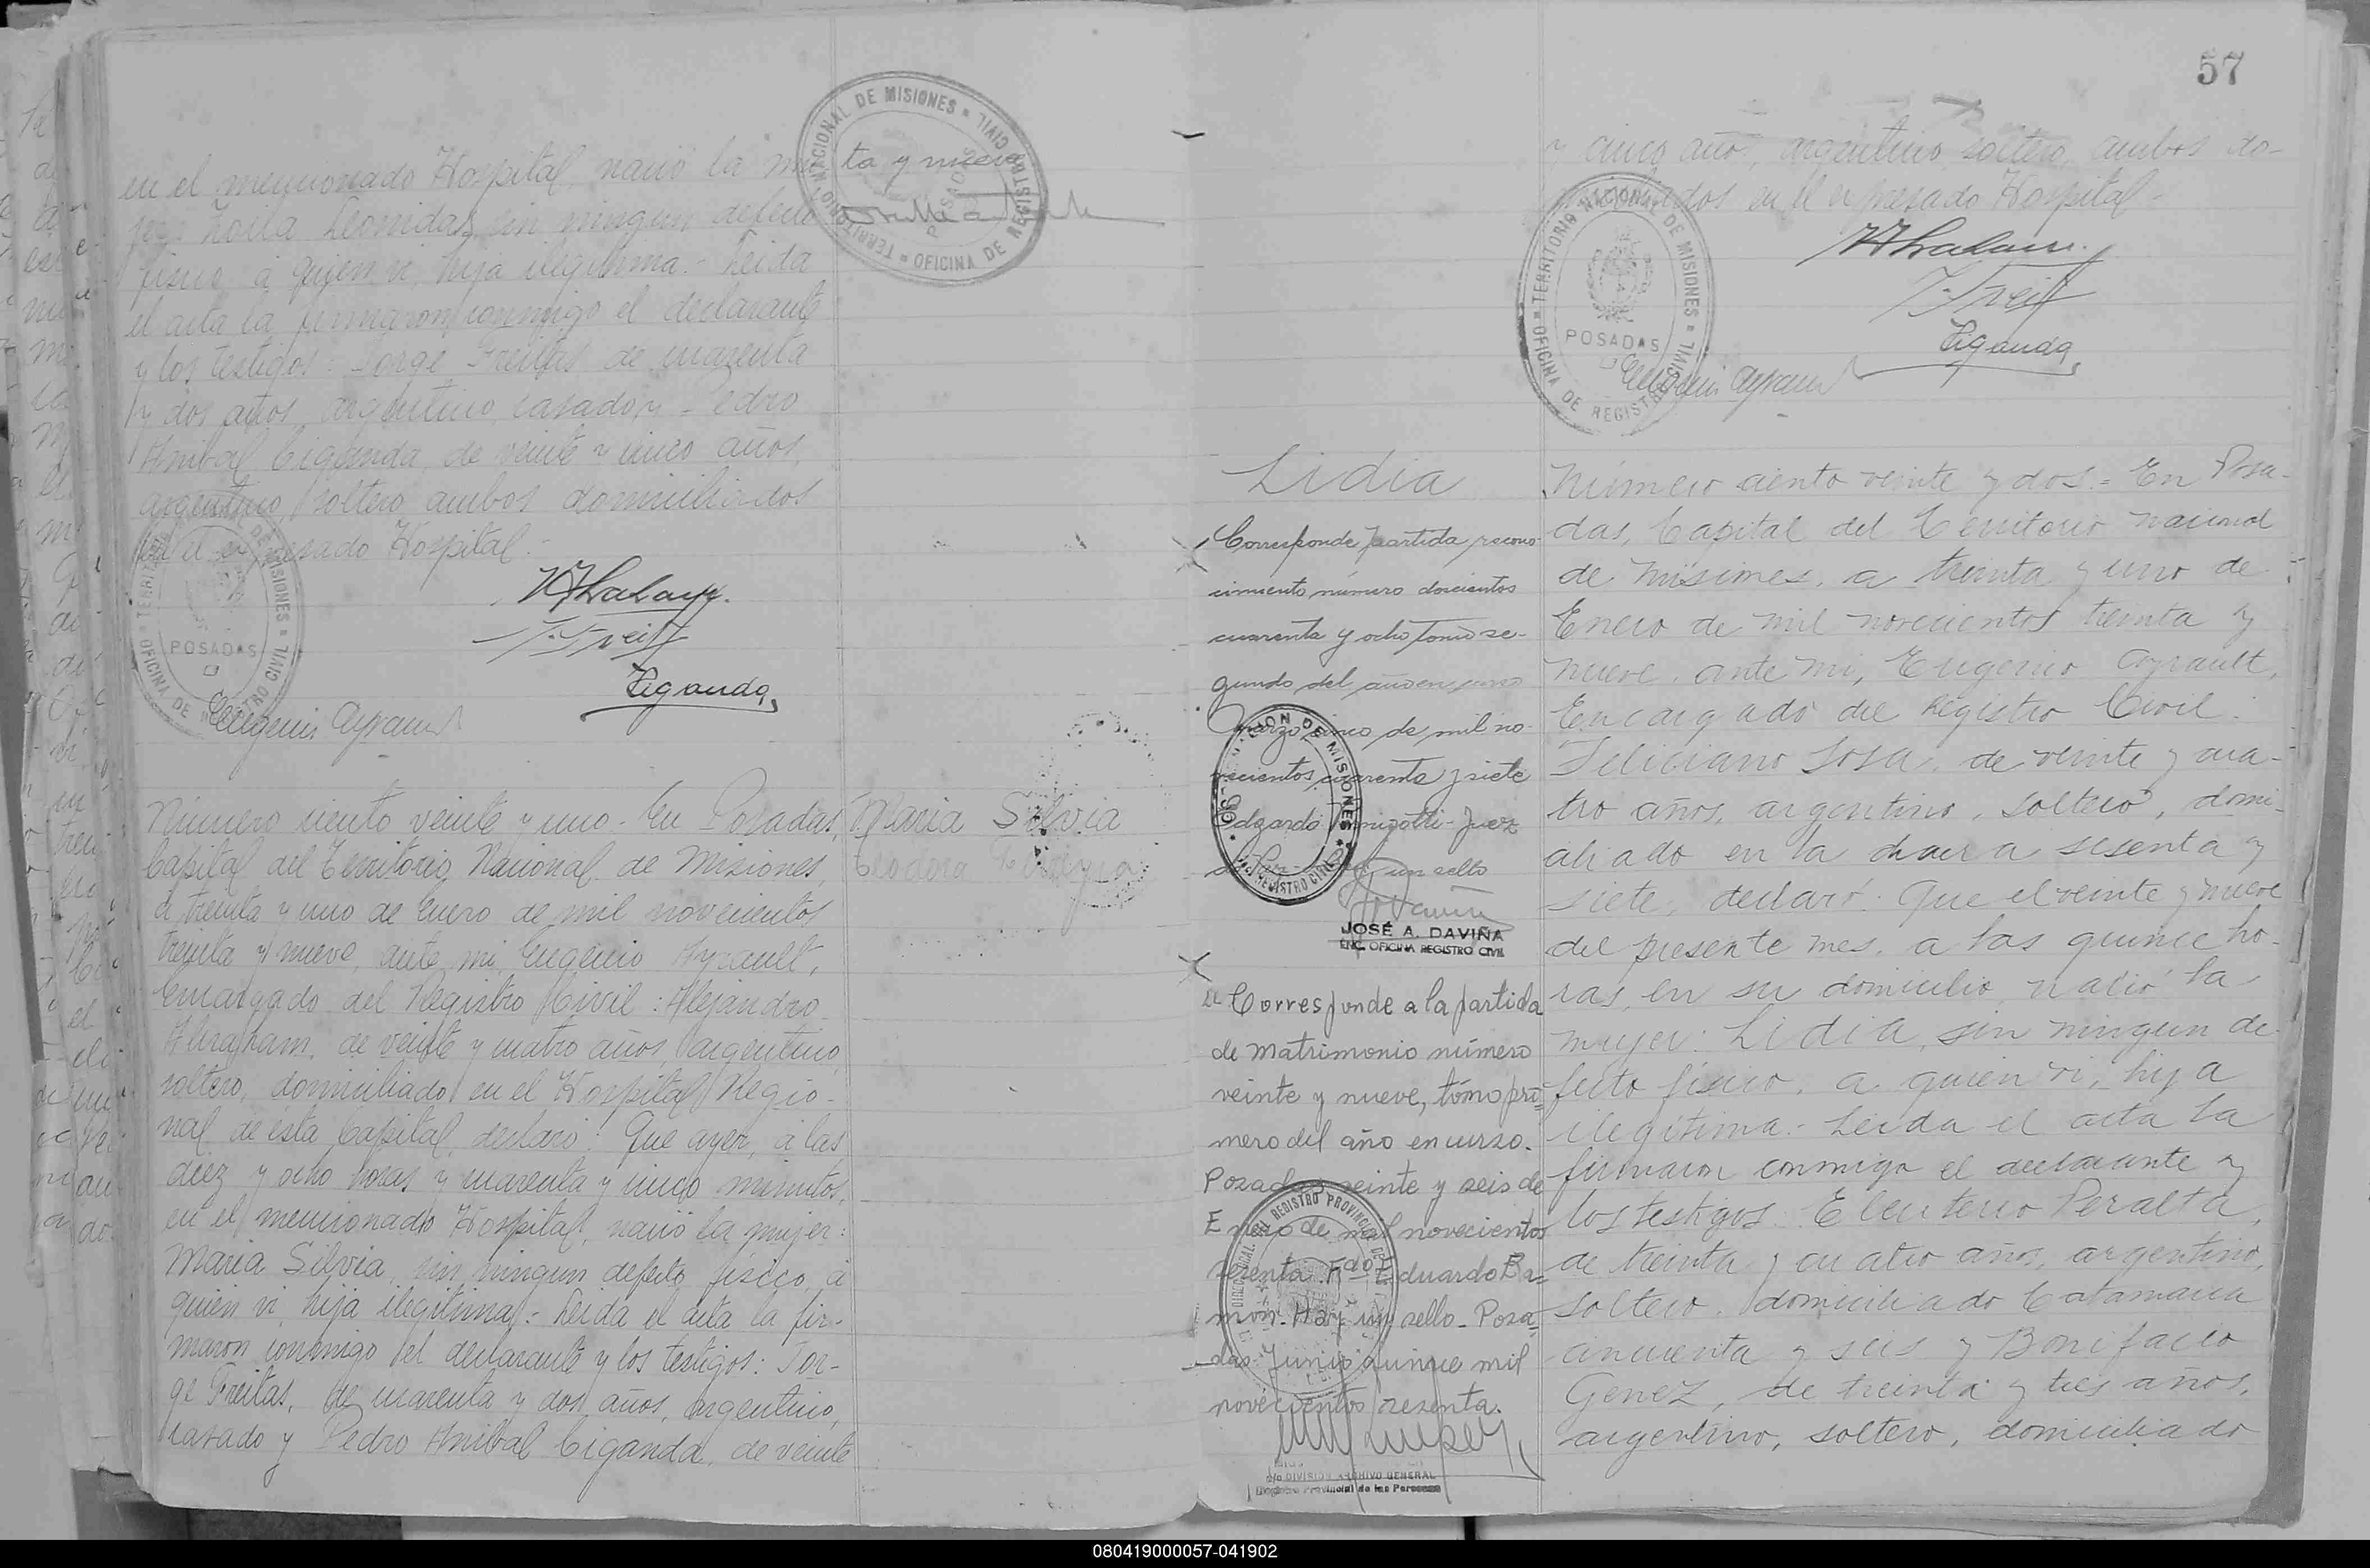 en el mencionado Hospital, nació la mu
jer: Zoila Leonidas, sin ningun defecto
fisico, á quien vi, hija ilegitima.- Leida
el acta la firmaron conmigo el declarante
y los testigos: Jorge Freitas de cuarenta
y dos años, argentino, casado y Pedro
Anibal Ciganda, de veinte y cinco años,
argentino, soltero ambos domiciliados
en el expresado Hospital.-
ta y nueve
TERRITORIO NACIONAL DE MISIONES
OFICINA DE REGISTRO CIVIL
POSADAS
TERRITORIO NACIONAL DE MISIONES
OFICINA DE REGISTRO CIVIL
POSADAS
J. Freit
Ciganda
Eugenio Ayrault
Número ciento veinte y uno - En Posadas,
Capital del Territorio Nacional de Misiones,
á treinta y uno de Enero de mil novecientos
treinta y nueve, ante mi, Eugenio Ayrault,
Encargado del Registro Civil: Alejandro
Abragham, de veinte y cuatro años, argentino,
soltero, domiciliado en el Hospital Regio-
nal de ésta Capital, declaró: Que ayer, á las
diez y ocho horas y cuarenta y cinco minutos,
en el mencionado Hospital, nació la mujer:
Maria Silvia, sin ningun defecto fisico, á
quien vi, hija ilegitima.- Leida el acta la fir-
maron conmigo el declarante y los testigos: Jor-
ge Freitas, de cuarenta y dos años, argentino,
casado y Pedro Anibal Ciganda, de veinte
Maria Silvia
Teodora
57
y cinco años, argentino soltero, ambos do-
miciliados en el expresado Hospital-
TERRITORIO NACIONAL DE MISIONES
OFICINA DE REGISTRO CIVIL
POSADAS
J. Freit
Ciganda
Eugenio Ayrault
Lidia
Corresponde partida recono-
cimiento número doscientos
cuarenta y ocho tomo se-
gundo del año en curso
Marzo cinco de mil no-
vecientos cuarenta y siete
Edgardo Juez
un sello
DE MISIONES
REGISTRO CIVIL
JOSÉ A. DAVIÑA
ENC. OFICINA REGISTRO CIVIL
Corresponde a la partida
de matrimonio número
veinte y nueve, tómo pri=
mero del año en curso.
Posadas, veinte y seis de
Enero de mil novecientos
sesenta. Fdo Eduardo Ba=
mon. Hay un sello - Posa=
das. Junio quince mil
novecientos sesenta.
DIVISION ARCHIVO GENERAL
Registro Provincial de las Personas
Número ciento veinte y dos.= En Posa-
das, Capital del Territorio nacional
de Misiones, a treinta y uno de
Enero de mil novecientos treinta y
nueve, ante mi, Eugenio Ayrault,
Encargado del Registro Civil:
Feliciano Sosa, de veinte y cua-
tro años, argentino, soltero, domi-
ciliado en la chacra sesenta y
siete, declaró: Que el veinte y nueve
del presente mes, a las quince ho-
ras, en su domicilio nació la
mujer: Lidia, sin ningun de-
fecto fisico, a quien vi, hija
ilegítima.- Leida el acta la
firmaron conmigo el declarante y
los testigos: Eleuterio Peralta,
de treinta y cuatro años, argentino,
soltero, domiciliado Catamarca
cincuenta y seis y Bonifacio
Genez, de treinta y tres años,
argentino, soltero, domiciliado
080419000057-041902